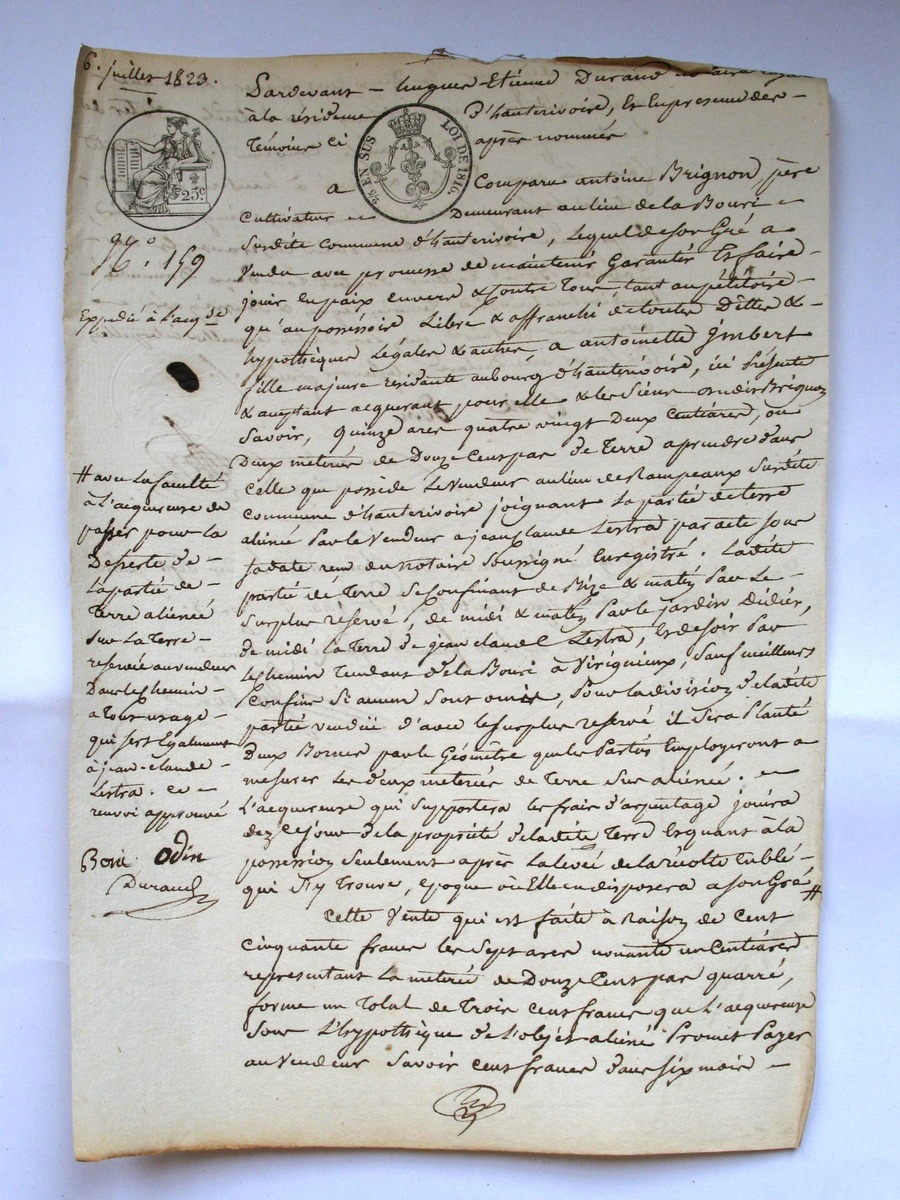 6. juillet 1823.
Pardevant hugues Etienne Durand notaire royal
à la résidence d'hauterivoire, et en presence des
Témoins ci après nommés
25c
2/5 EN SUS LOI DE 1816
a Comparu antoine Brignon, père
cultivateur Demeurant au lieu de la Bouri
surdite commune d'hauterivoire, lequel de son Gré a
vendu avec promesse de maintenir Garantir et faire
jouir en paix envers & Contre Tous tant au pétitoire
qu'au possésoire Libre & affranchi de toutes Dettes &
hypothèques Légales & autres, a antoinette Jmbert
fille majeure résidante au bourg d'hauterivoire, ici Présente
& aceptant acquerant pour elle & les siens dudit Brignon
Savoir, quinze ares quatre vingt Deux Centiares, ou
Deux meterées de Douze Cent pas de Terre a prendre dans
celle que posséde Le vendeur au lieu des Rampeaux surdite
commune d'hauterivoire joignant La partie de terre
aliénée Par le Vendeur a jean Claude Lestra par acte sous
sa date reçu du notaire soussigné Enregistré. Ladite
partie de Terre se Confinant de Bize & matin Par Le
surplus réservé, de midi & matin Par le jardin Didier,
de midi la Terre de jean claude Lestra, et de soir Par
le chemin Tendant de la Bouri à Viriguieux, sauf meilleurs
Confins si aucun sont omis, Pour la division de ladite
partie vendue d'avec le surplus reservé il sera Planté
Deux Bornes par le Géomètre que les Parties Employeront a
mesurer les deux meterées de Terre sus aliénée.
L'acquereuse qui supportera les frais d'arpentage jouira
dez ce jour de la propriété de ladite Terre et quant à la
possession seulement après La levée de la récolte en blé
qui s'y Trouve, epoque où Elle en disposera a son Gré #
Cette Vente qui est faite à Raison de cent
cinquante francs les sept ares nonante un Centiares
représentant la meterée de Douze Cent pas quarré,
forme un Total de Trois cent francs que L'acquereuse
sous L'hypothèque de l'objet aliéné Promet Payer
au Vendeur Savoir cent francs dans six mois
No. 159
Expedié à l'acq.se
# avec La faculté
à L'acquereuse de
passer pour la
Deserte de
La partie de
Terre alienée
sur La Terre
reservée au vendeur
Dans le chemin
a tout usage
qui sert Egalement
à jean-claude
Lestra. ce
renvoi approuvé
Odin
Durand